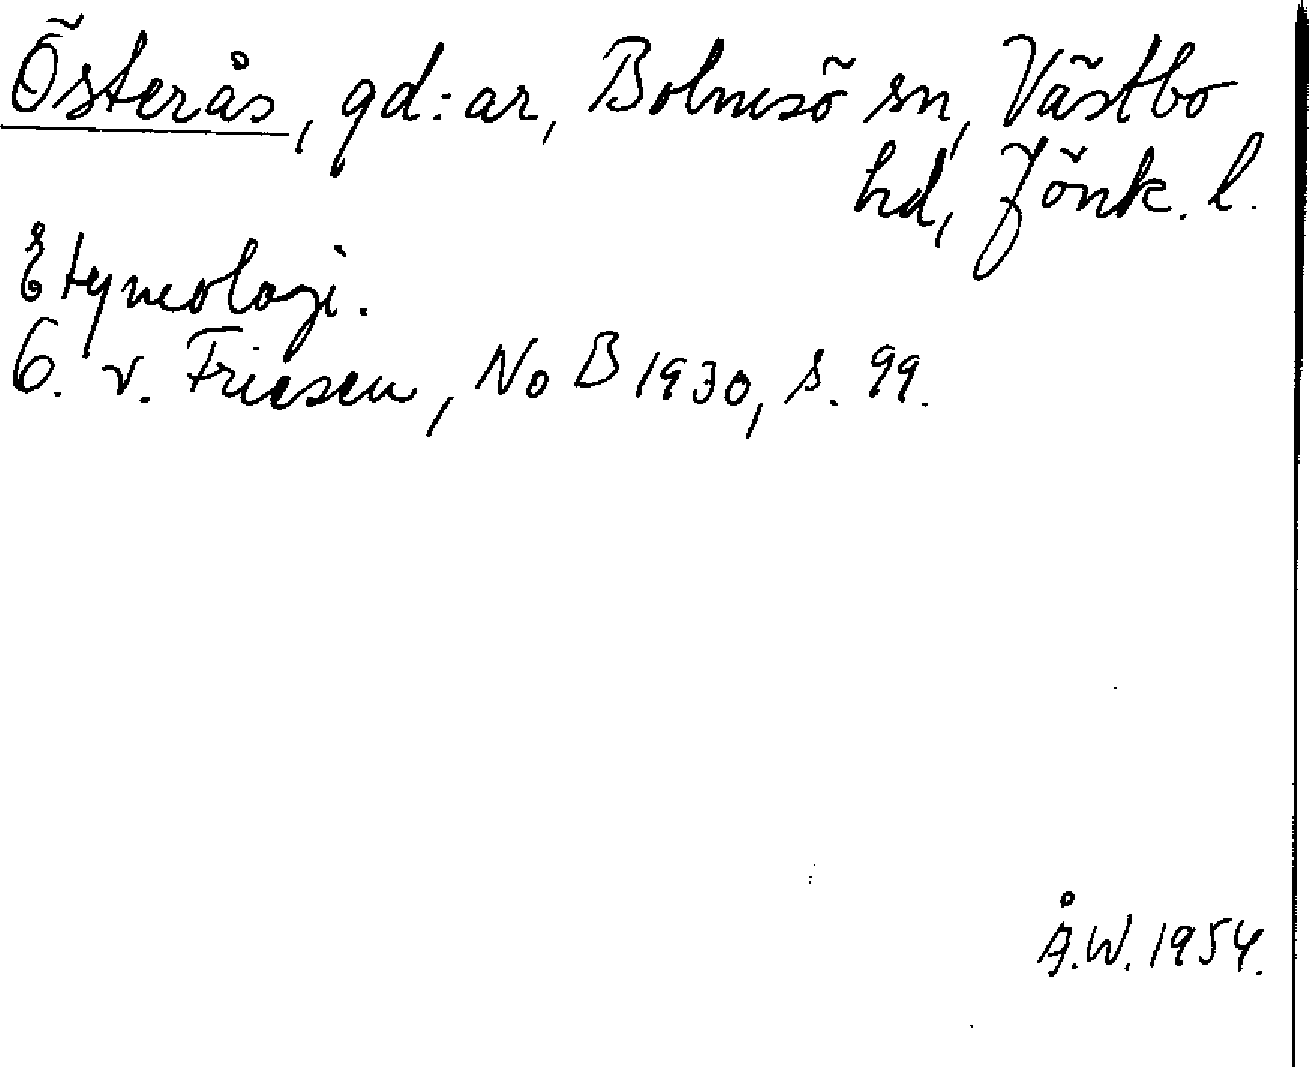 Österås, gd:ar, Bolmsö sn, Västbo
hd, Jönk. l.
Etymologi.
O. v. Friesen, NoB 1930, s. 99.
Å.W. 1954.